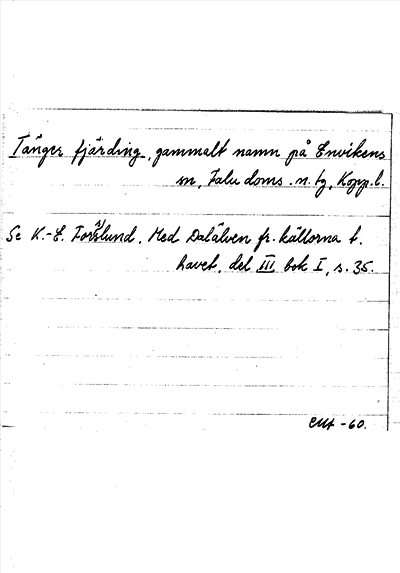 Tånger fjärding, gammalt namn på Envikens
sn, Falu doms. n. tg, Kopp. l.
Se K.-E. Forsslund. Med Dalälven fr. källorna t.
havet, del III, bok I, s. 35.
-60.